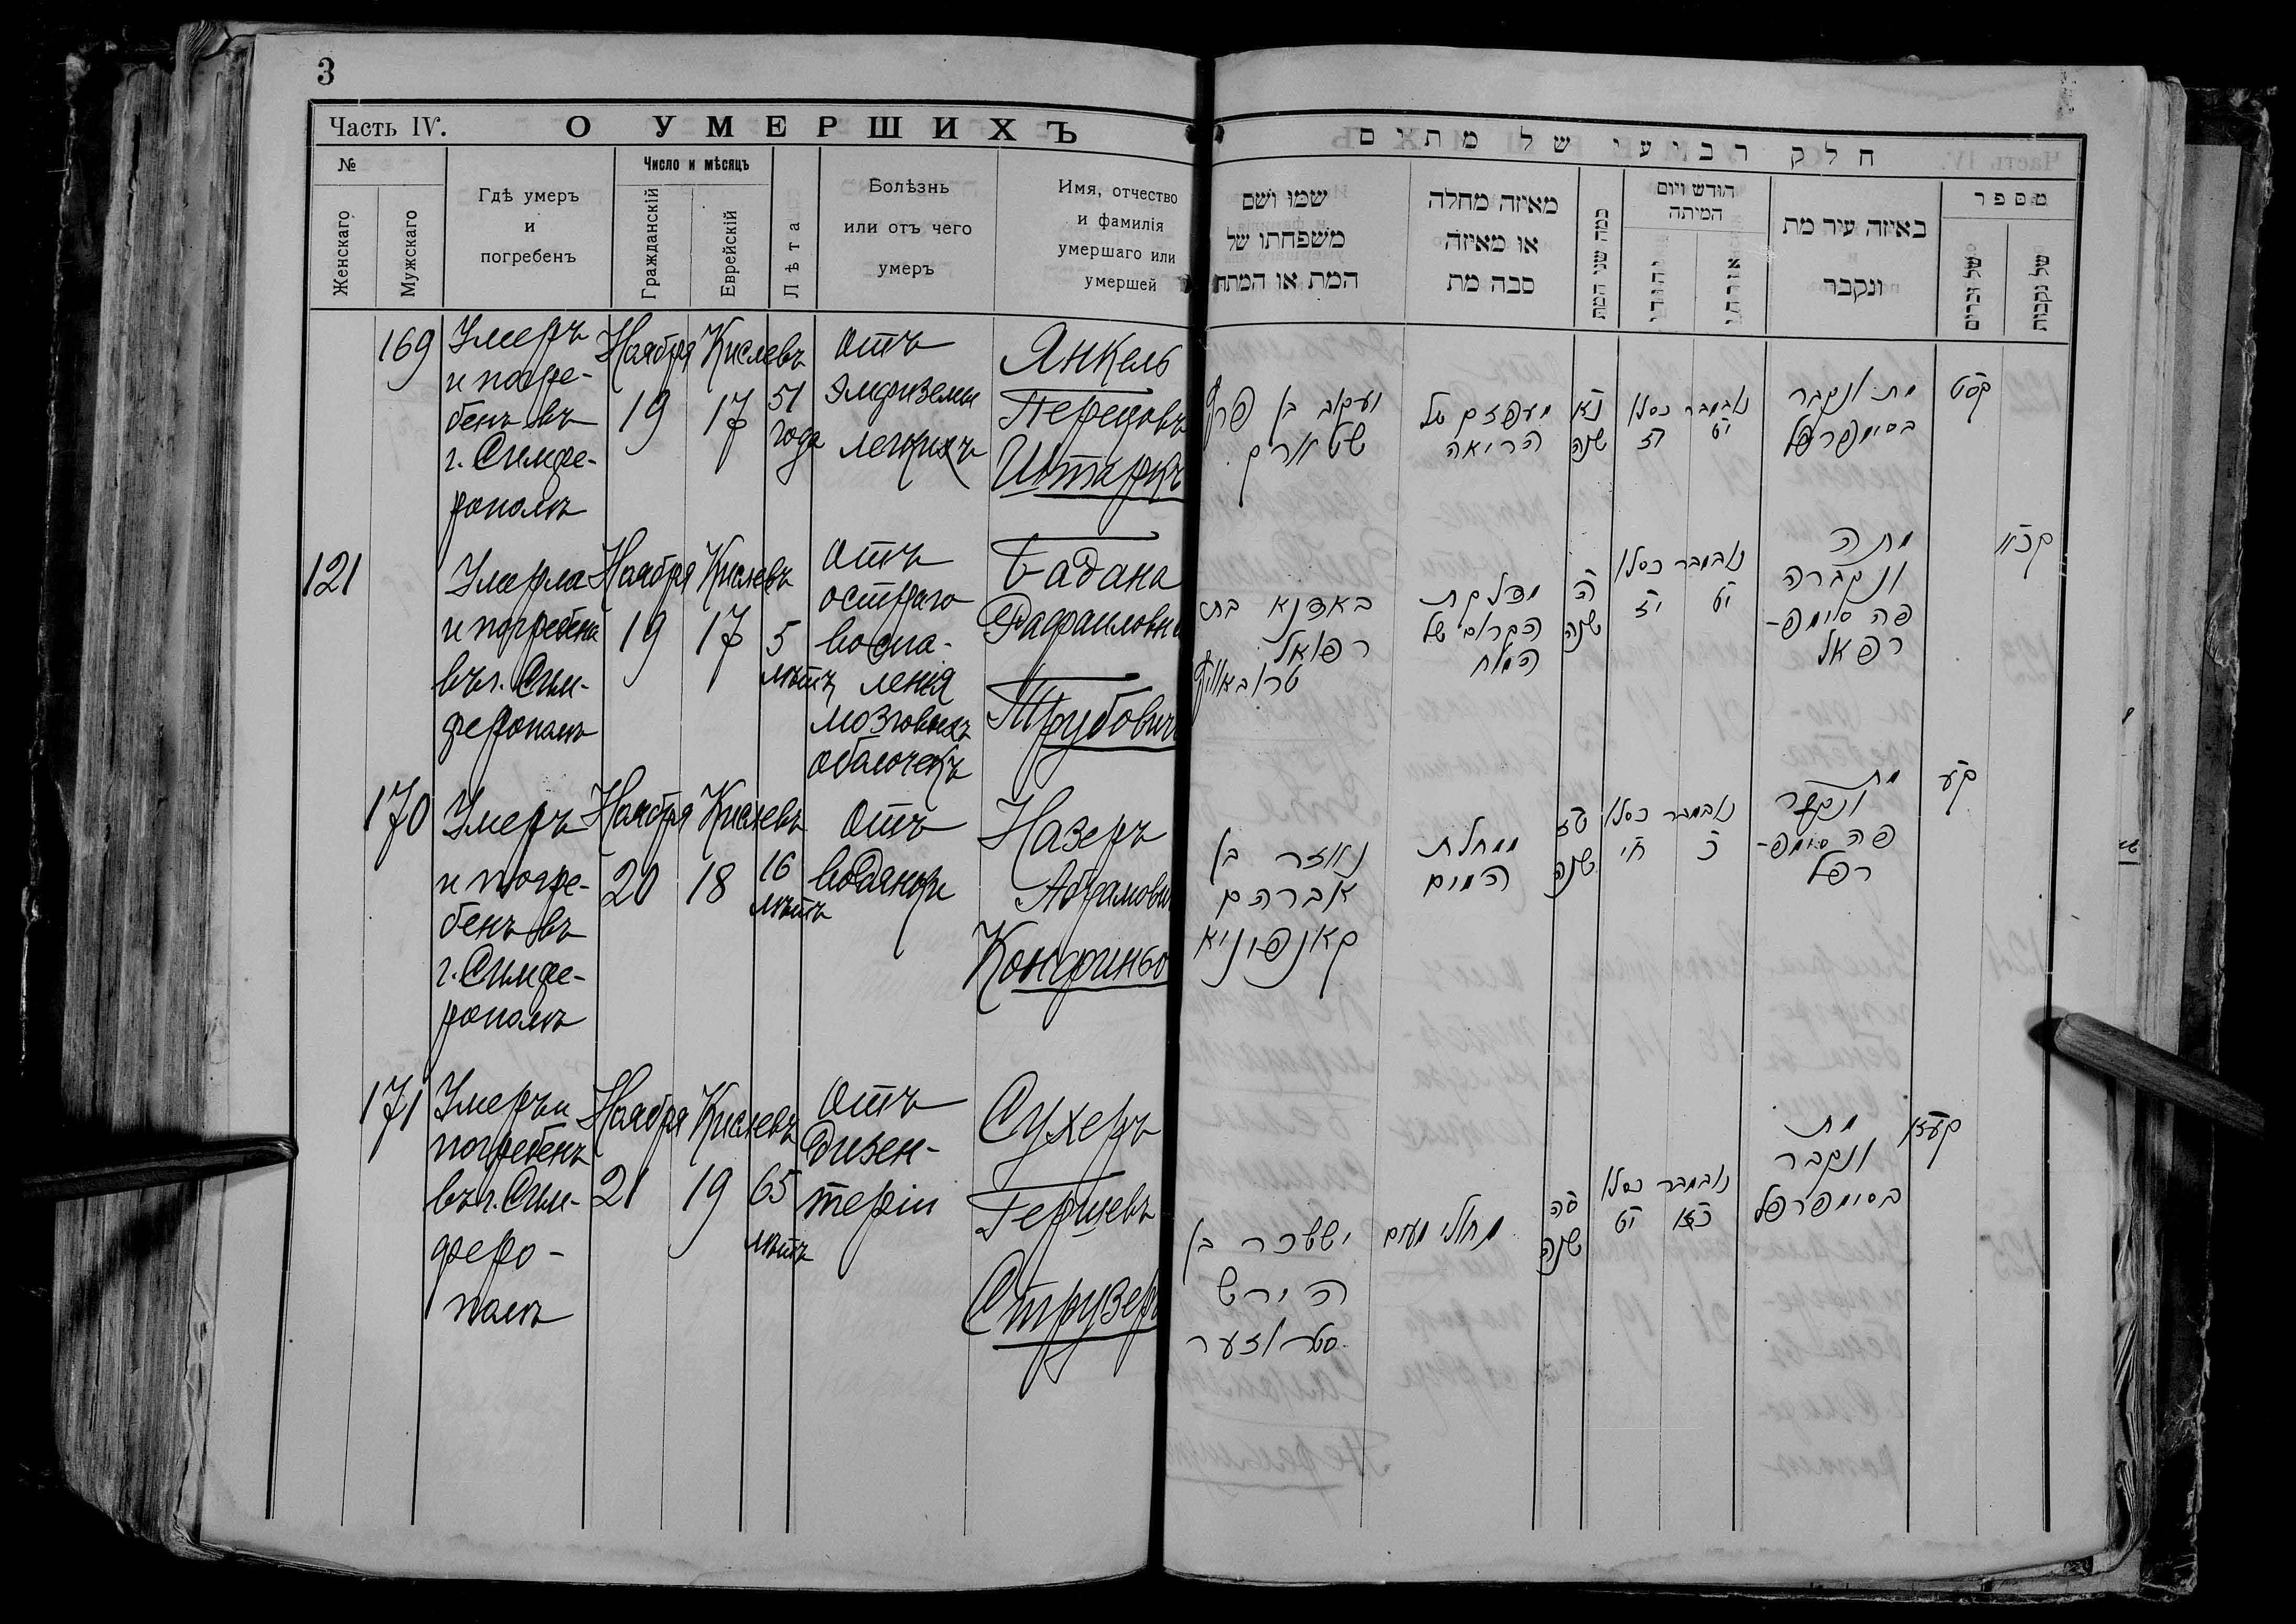 3
Часть IV.
О УМЕРШИХЪ
№
Женскаго
Мужскаго
Гдѣ умеръ
и
погребенъ
Число и мѣсяцъ
Гражданскій
Еврейскій
Лѣта
Болѣзнь
или отъ чего
умеръ
Имя, отчество
и фамилія
умершаго или
умершей
169
Умеръ
и погре-
бенъ въ
г. Симфе-
рополѣ
Ноября
19
Кислевъ
17
51
года
отъ
эмфиземы
легкихъ
Янкель
Перецовъ
Штаркъ
121
Умерла
и погребена
въ г. Сим-
ферополѣ
Ноября
19
Кислевъ
17
5
лѣтъ
отъ
остраго
воспа-
ленія
мозговыхъ
оболочекъ
Бадана
Рафаиловна
Трубовичъ
170
Умеръ
и погре-
бенъ въ
г. Симфе-
рополѣ
Ноября
20
Кислевъ
18
16
лѣтъ
отъ
водянки
Назеръ
Абрамовичъ
Конфиньо
171
Умеръ и
погребенъ
въ г. Сим-
феро-
полѣ
Ноября
21
Кислевъ
19
65
лѣтъ
отъ
Дизен-
теріи
Сухеръ
Гершевъ
Струзеръ
חלק רביעי של מתים
מספר
של נקבות
של זכרים
באיזה עיר מת
ונקבר
חודש ויום
המיתה
כמה שני המת
מאיזה מחלה
או מאיזה
סבה מת
שמו ושם
משפחתו של
המת או המתה
קסט
מת ונקבר
בסימפרפל
נאבמבר
יט
כסלו
יז
נא
שנה
הריאה
יעקב בן פרץ
שטארק
קכא
מתה
ונקברה
פה סימפ-
רפאל
נאבמבר
יט
כסלו
יז
ה
שנה
מדלקת
הקרום של
המח
באדנא בת
רפאל
טרובאוויץ
קע
מת
ונקבר
פה סימפ-
רפל
נאבמבר
כ
כסלו
חי
טז
שנה
ממחלת
המים
נאזר בן
אברהם
קאנפיניא
קעא
מת
ונקבר
בסימפרפל
נאבמבר
כא
כסלו
יט
סה
שנה
מחולי מעים
יששכר בן
הירש
סטרוזער